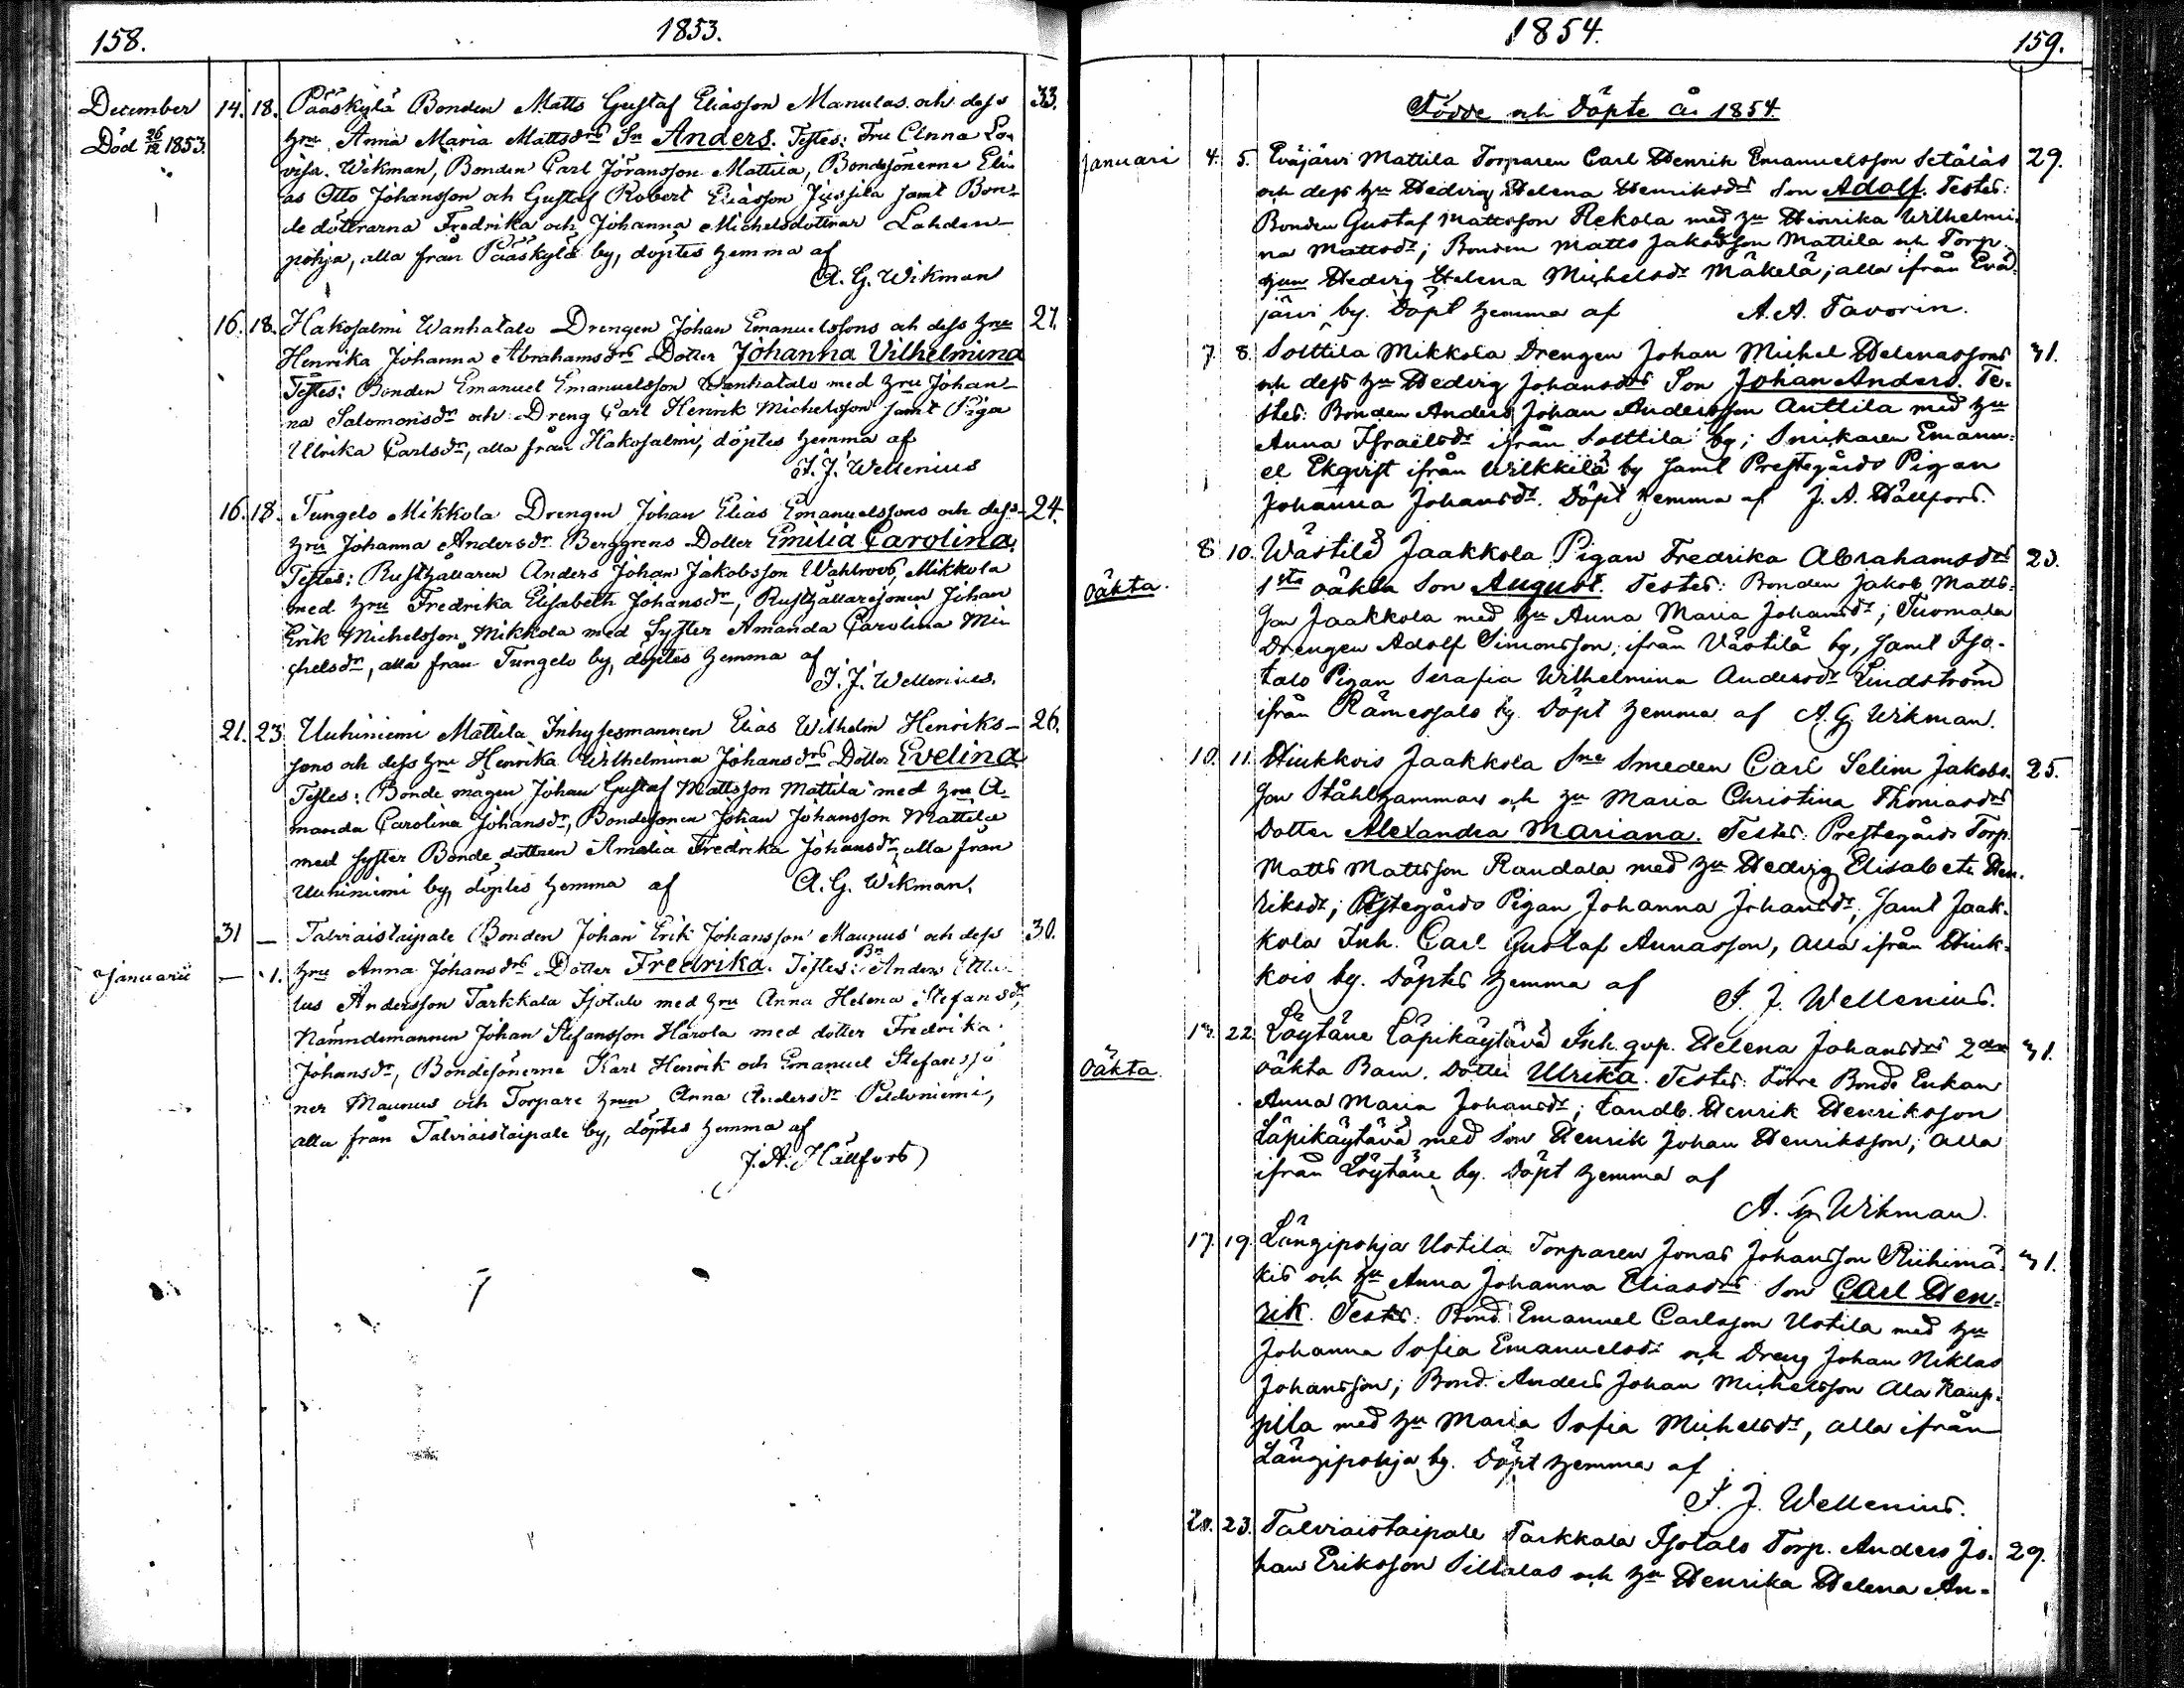 158. 1853.
December 14. 18. Pääskylä Bonden Matts Gustaf Eliasson Manulas och dess 33.
Död 26/12 1853. hru Anna Maria Mattsdrs Sn Anders. Testes: Fru Anna Lo-
visa Wikman, Bonden Carl Jöransson Mattila, Bondesönerne Eli-
as Otto Johansson och Gustaf Robert Eliasson Jussila samt Bon-
de döttrarna Fredrika och Johanna Michelsdöttrar Lahden-
pohja, alla från Pääskylä by, döptes hemma af
A. G. Wikman
16. 18. Hakosalmi Wanhatalo Drengen Johan Emanuelssons och dess hru 27.
Henrika Johanna Abrahamsdrs Dotter Johanna Vilhelmina
Testes: Bonden Emanuel Emanuelsson Wanhatalo med hru Johan-
na Salomonsdr och Dreng Carl Henrik Michelsson samt Piga
Ulrika Carlsdr, alla från Hakosalmi, döptes hemma af
J. J. Wellenius
16. 18. Tungelo Mikkola Drengen Johan Elias Emanuelssons och dess 24.
hru Johanna Andersdr Berggrens Dotter Emilia Carolina.
Testes: Rusthållaren Anders Johan Jakobsson Wahlroos, Mikkola
med hru Fredrika Elisabeth Johansdr, Rusthållaresonen Johan
Erik Michelsson Mikkola med Syster Amanda Carolina Mi-
chelsdr, alla från Tungelo by, döptes hemma af
J. J. Wellenius.
21. 23. Uuhiniemi Mattila Inhysesmannen Elias Wilhelm Henriks- 26.
sons och dess hru Henrika Wilhelmina Johansdrs Dotter Evelina
Testes: Bonde magen Johan Gustaf Mattsson Mattila med hru A-
manda Carolina Johansdr, Bondesonen Johan Johansson Mattila
med syster Bonde dottren Amalia Fredrika Johansdr, alla från
Uuhiniemi by, döptes hemma af A. G. Wikman.
31 — Talviaistaipale Bonden Johan Erik Johansson Maunus' och dess 30.
Januarii — 1. hru Anna Johansdrs Dotter Fredrika. Testes: Bn Anders
lus Andersson Tarkkala Isotalo med hru Anna Helena Stefansdr,
Nämndemannen Johan Stefansson Harola med dotter Fredrika
Johansdr, Bondesönerne Karl Henrik och Emanuel Stefansso
ner Maunus och Torpare hrun Anna Andersdr Peldoniemi,
alla från Talviaistaipale by, döptes hemma af
J. A. Hällfors
1854. 159.
Födde och Döpte År 1854.
Januari 4. 5. Eväjärvi Mattila Torparen Carl Henrik Emanuelsson Setäläs 29.
och dess hu Hedvig Helena Henriksdrs Son Adolf. Testes:
Bonden Gustaf Mattsson Rekola med hu Henrika Wilhelmi-
na Mattsdr; Bonden Matts Jakobsson Mattila och Torp.
hun Hedvig Helena Michelsdr Mäkelä; alla ifrån Evä-
järvi by. Döpt hemma af A. A. Favorin.
7. 8. Solttila Mikkola Drengen Johan Michel Helenassons 31.
och dess hu Hedvig Johansdrs Son Johan Anders. Te-
stes: Bonden Anders Johan Andersson Anttila med hu
Anna Israelsdr ifrån Solttila by; Snickaren Emanu-
el Ekqvist ifrån Wilkkilä by samt Prestegårds Pigan
Johanna Johansdr. Döpt hemma af J. A. Hällfors.
8. 10. Wästilä Jaakkola Pigan Fredrika Abrahamsdrs 23.
oäkta. 1sta oäkta Son August. Testes: Bonden Jakob Matts-
son Jaakkola med hu Anna Maria Johansdr; Tuomala
Drengen Adolf Simonsson, ifrån Västilä by, samt Iso-
talo Pigan Serafia Wilhelmina Andersdr Lindström
ifrån Rämessalo by. Döpt hemma af A. G. Wikman.
10. 11. Hiukkois Jaakkola Sne Smeden Carl Selim Jakobs- 25.
son Stålhammars och hu Maria Christina Thomasdrs
Dotter Alexandra Mariana. Testes: Prestegårds Torp.
Matts Mattsson Randala med hu Hedvig Elisabeth Hen-
riksdr; Prestegårds Pigan Johanna Johansdr, samt Jaak-
kola Inh. Carl Gustaf Annasson, alla ifrån Hiuk-
kois by. Döptes hemma af J. J. Wellenius.
22. Löytäne Läpikäytävä Inh. qvp. Helena Johansdrs 2dra 31.
oäkta. oäkta Barn. Dotter Ulrika. Testes: Förre Bonde Enkan
Anna Maria Johansdr; Landb. Henrik Henriksson
Läpikäytävä med Son Henrik Johan Henriksson; alla
ifrån Löytäne by. Döpt hemma af
A. G. Wikman.
17. 19. Längipohja Uotila Torparen Jonas Johansson Riihimä- 31.
kis och hu Anna Johanna Eliasdrs Son Carl Hen-
rik. Testes: Bond. Emanuel Carlsson Uotila med hu
Johanna Sofia Emanuelsdr och Dreng Johan Niklas
Johansson; Bond. Anders Johan Michelsson Ala Kaup-
pila med hu Maria Sofia Michelsdr, alla ifrån
Längipohja by. Döpt hemma af
J. J. Wellenius.
20. 23. Talviaistaipale Tarkkala Isotalo Torp. Anders Jo- 29.
han Eriksson Sillalas och hu Henrika Helena An-